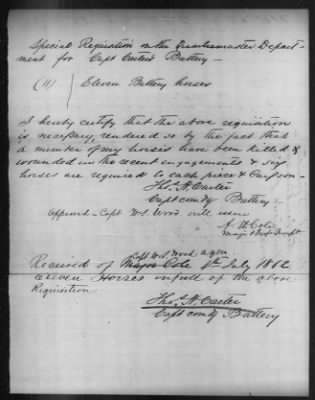 Special Requisition on the Quartermaster Depart-
ment for Capt Carters Battery –
(11) Eleven Battery horses
I hereby certify that the above requisition
is necessary, rendered so by the fact that
a number of my horses have been killed &
wounded in the recent engagements & six
horses are required to each piece & Caisson –
Thos H. Carter
Capt comdg Battery
Approved – Capt W.S. Wood will issue
A. H. Cole
Major &
Capt W.S. Wood aqm
Received of Major Cole July 1862
eleven Horses in full of the above
Requisition
Thos H. Carter
Capt comdg Battery